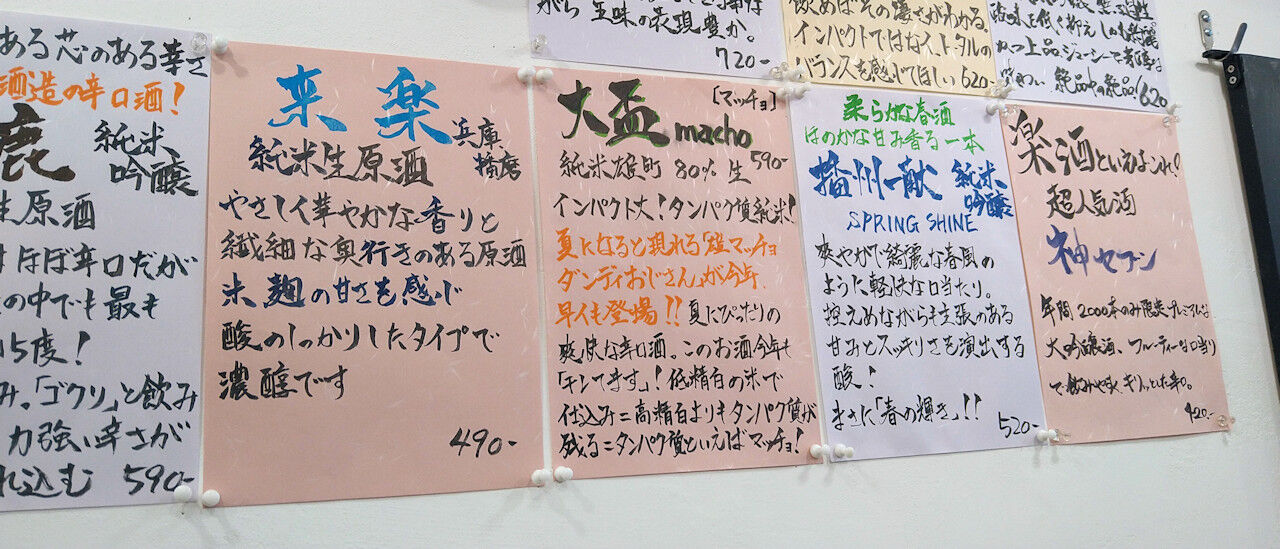 がら五味の表現豊か。
720-
飲めばその凄さがわかる。
インパクトではなく、トータルの
バランスを感じてほしい 620-
620
ある芯のある辛さ
酒造の辛口酒!
鹿 純米
吟醸
生原酒
ほぼ辛口だが
の中でも最も
15度!
み。「ゴクリ」と飲み
力強い辛さが
れ込む 590-
来楽
兵庫
播磨
純米生原酒
やさしく華やかな香りと
繊細な奥行きのある原酒
米麹の甘さを感じ
酸のしっかりしたタイプで
濃醇です
490-
[マッチョ]
大盃 macho
純米雄町 80% 生 590-
インパクト大!タンパク質純米!
夏になると現れる「短マッチョ
ダンディおじさん」が今年、
早くも登場!!夏にぴったりの
爽快な辛口酒。このお酒今年も
「キンてます」!低精白の米で
仕込み=高精白よりもタンパク質が
残る=タンパク質といえばマッチョ!
柔らかな春酒
ほのかな甘み香る一本
播州一献 純米
吟醸
SPRING SHINE
爽やかで綺麗な春風の
ように軽快な口当たり。
控えめながらも主張のある
甘みとスッキリさを演出する
酸!
まさに「春の輝き」!!
520-
楽酒といえばこれ!
超人気酒
神セブン
年間2000本のみ限定プレミアムな
大吟醸酒、フルーティーな口当り
で飲みやすく、キリッとした辛口。
420-